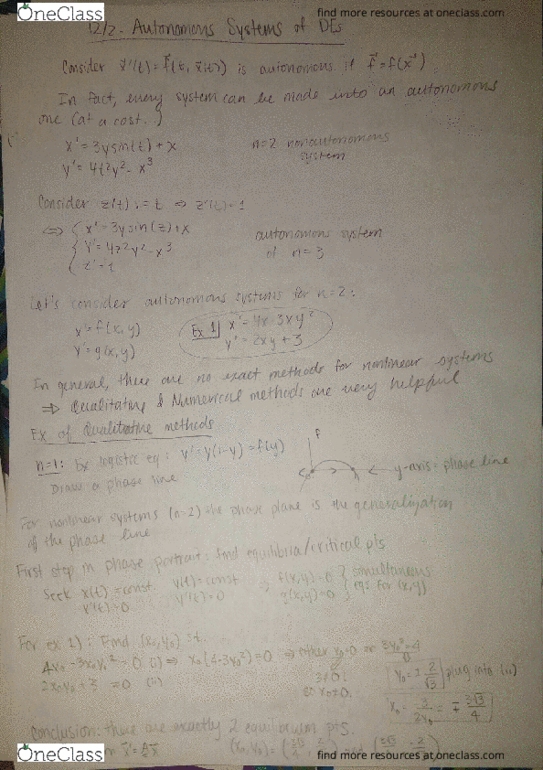 OneClass
find more resources at oneclass.com
find more resources at oneclass.com
12/2. Autonomous Systems of DEs
Consider x⃗'(t) = F⃗(t, x⃗(t)) is autonomous if f⃗ = f(x⃗).
In fact, every system can be made into an autonomous
one (at a cost.)
x' = 3y sin(t) + x n=2 nonautonomous
y' = 4t²y² - x³ system
Consider z(t) := t ⇒ z'(t) = 1
⇔ { x' = 3y sin(z) + x autonomous system
y' = 4z²y² - x³ of n=3
z' = 1
Let's consider autonomous systems for n=2:
x' = f(x,y) Ex 1 x' = 4x - 3xy²
y' = g(x,y) y' = 2xy + 3
In general, there are no exact methods for nonlinear systems
⇒ Qualitative & Numerical methods are very helpful
Ex of Qualitative methods
n=1: Ex logistic eq: y' = y(1-y) = f(y) F
Draw a phase line y-axis = phase line
For nonlinear systems (n=2) the phase plane is the generalization
of the phase line
First step in phase portrait: find equilibria/critical pts
Seek x(t) = const y(t) = const ⇒ f(x,y) = 0 } simultaneous
x'(t) = 0 y'(t) = 0 g(x,y) = 0 eqs for (x,y)
For ex 1): Find (x₀,y₀) s.t.
4x₀ - 3x₀y₀² = 0 (i) ⇒ x₀(4-3y₀²) = 0 ⇒ either x₀=0 or
2x₀y₀ + 3 = 0 (ii) 3≠0 so x₀≠0. y₀ = ± 2/√3 plug into (ii)
x₀ = - 3/2y₀ = ∓ 3√3/4
Conclusion: there are exactly 2 equilibrium pts.
OneClass
find more resources at oneclass.com
find more resources at oneclass.com